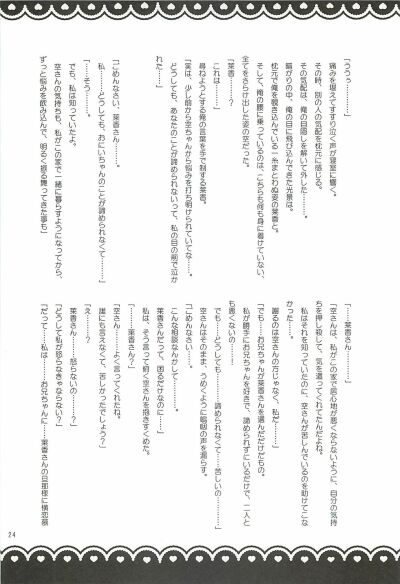 「ううぅ…………」
痛みを堪えてすすり泣く声が寝室に響く。
その時、別の人の気配を枕元に感じる。
その気配は、俺の目隠しを解いて外した……。
暗がりの中、俺の目に飛び込んできた光景は、
枕元で俺を覗き込んでいる一糸まとわぬ姿の葉香と、
そして、俺の腰に乗っているのは、こちらも何も身に着けていない、
全てをさらけ出した姿の空だった。
「葉香……？
これは……」
尋ねようとする俺の言葉を手で制する葉香。
「実は、少し前から空ちゃんから悩みを打ち明けられていたの。
どうしても、あなたのことが諦められないって、私の目の前で泣か
れた……」
「ごめんなさい、葉香さん……。
私……どうしても、おにいちゃんのことが諦められなくて……」
「……そう……。
でも、私は知っていたよ。
空さんの気持ちも、私がこの家で一緒に暮らすようになってから、
ずっと悩みを飲み込んで、明るく振る舞ってきた事も」
「……葉香さん……」
「空さんは、私がこの家で居心地が悪くならないように、自分の気持
ちを押し殺して、気を遣ってくれてたんだよね。
私はそれを知っていたのに、空さんが苦しんでいるのを助けてこな
かった……。
謝るのは空さんの方じゃなく、私だし……」
「でも……お兄ちゃんが葉香さんを選んだだけだもの。
私が勝手にお兄ちゃんを好きで、諦められずにいるだけで、二人と
も悪くないの……！
でも……どうしても……諦められなくて……苦しいの…………」
空さんはそのまま、うめくように嗚咽の声を漏らす。
「ごめんなさい……。
こんな相談なんかして……。
葉香さんだって、困るだけなのに……」
私は、そう言って俯く空さんを抱きすくめた。
「……葉香さん……？」
「空さん……よく言ってくれたね。
誰にも言えなくて、苦しかったでしょう？」
「え……？
葉香さん……怒らないの……？」
「どうして私が怒らなきゃならない？」
「だって……私は……お兄ちゃんに……葉香さんの旦那様に横恋慕
24